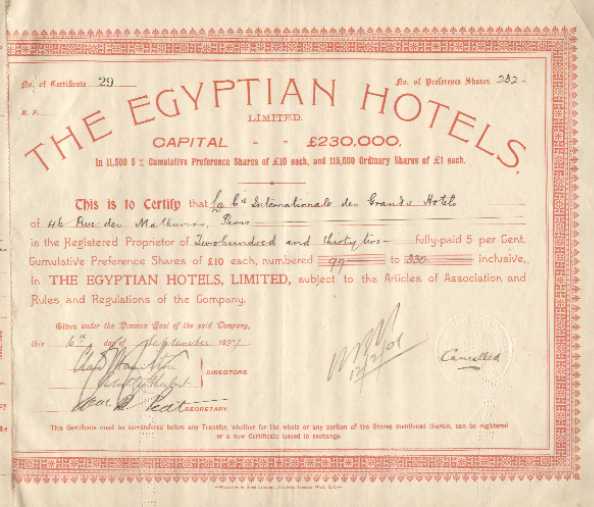 No. of Certificate 29
No. of Preference Shares 232
R. P.
THE EGYPTIAN HOTELS,
LIMITED.
CAPITAL - - £230,000.
In 11,500 5 % Cumulative Preference Shares of £10 each, and 115,000 Ordinary Shares of £1 each.
This is to Certify that La Cie Internationale des Grands Hotels
of 46 Rue des Mathurins, Paris
is the Registered Proprietor of Two hundred and thirty two fully-paid 5 per Cent.
Cumulative Preference Shares of £10 each, numbered 99 to 330 inclusive,
in THE EGYPTIAN HOTELS, LIMITED, subject to the Articles of Association and
Rules and Regulations of the Company.
Given under the Common Seal of the said Company,
this 6th day of September 1897
DIRECTORS
12/2/01
Cancelled
SECRETARY
This Certificate must be surrendered before any Transfer, whether for the whole or any portion of the Shares mentioned therein, can be registered
or a new Certificate issued in exchange.